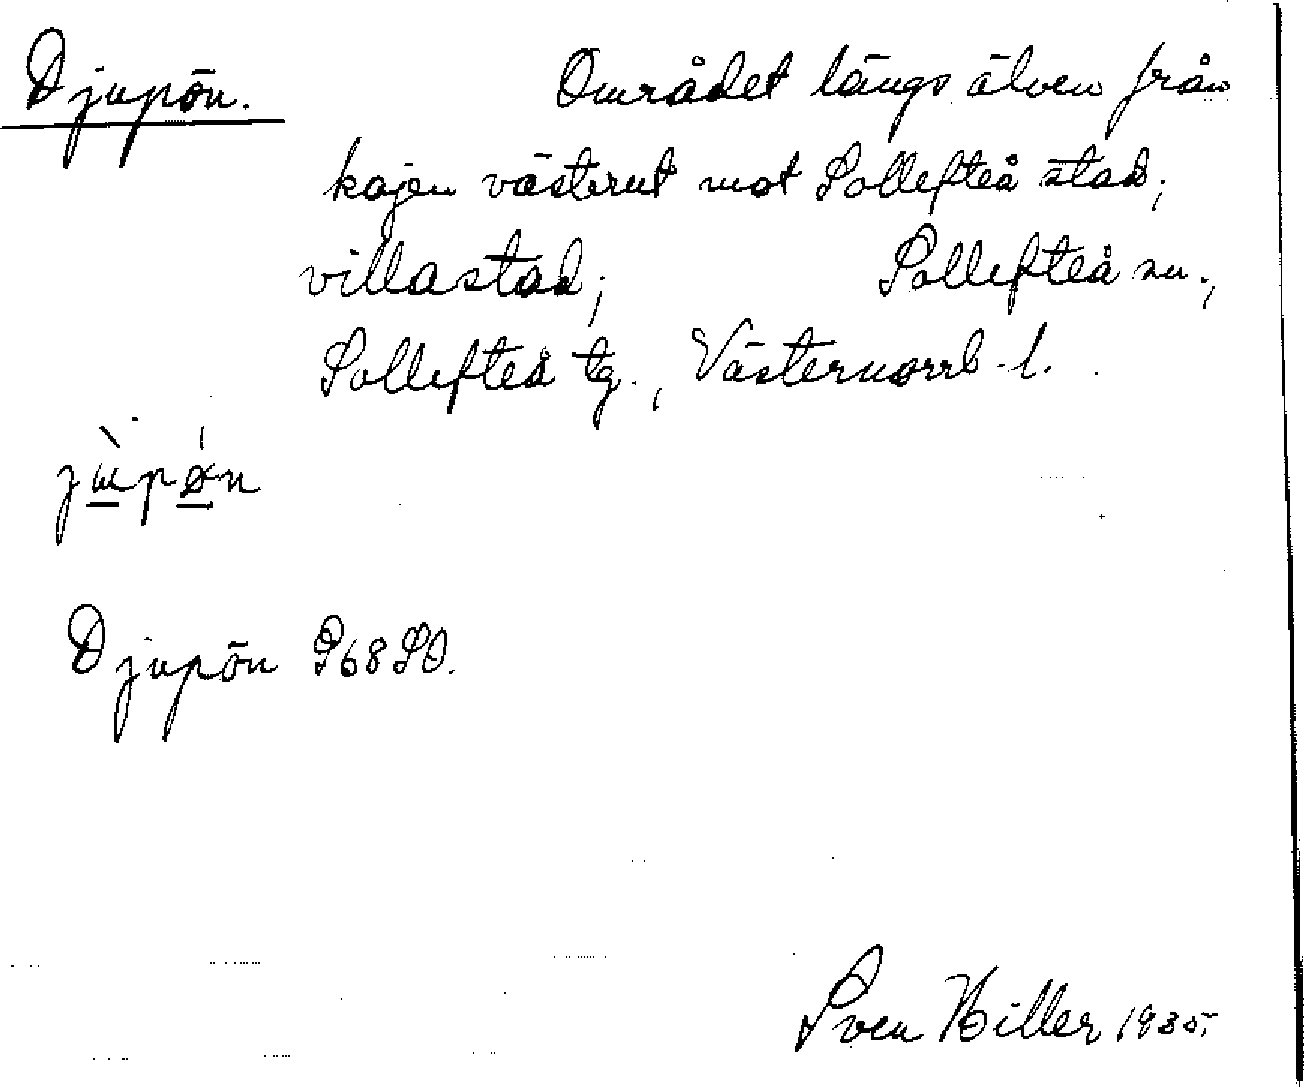 Djupön. Området längs älven från
kajen västerut mot Sollefteå stad;
villastad; Sollefteå sn.,
Sollefteå tg., Västernorrl. l.
Djupön G68SO.
Sven Hiller 1935.